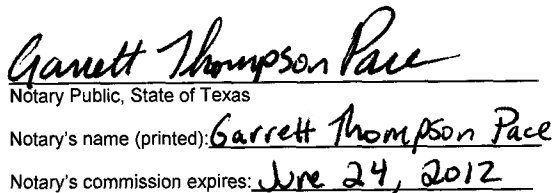 Garrett Thompson Pace
Notary Public, State of Texas
Notary's name (printed): Garrett Thompson Pace
Notary's commission expires: June 24, 2012